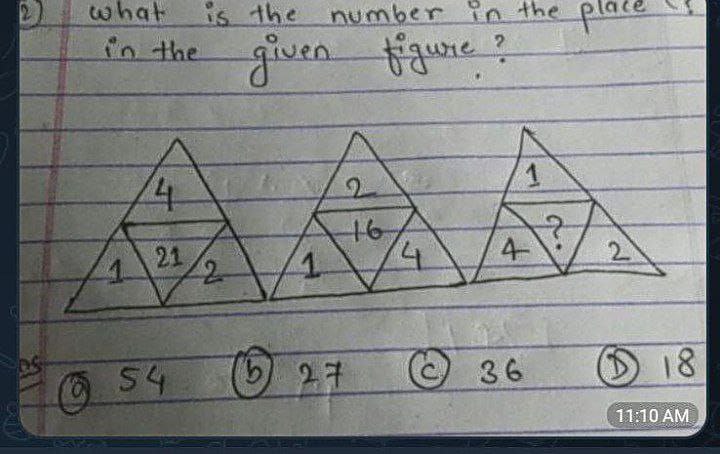 2) what is the number in the place (?
in the given figure ?
4
2
1
1 21 2
1 16 4
4 ? 2
ⓐ 54 ⓑ 27 ⓒ 36 Ⓓ 18
11:10 AM